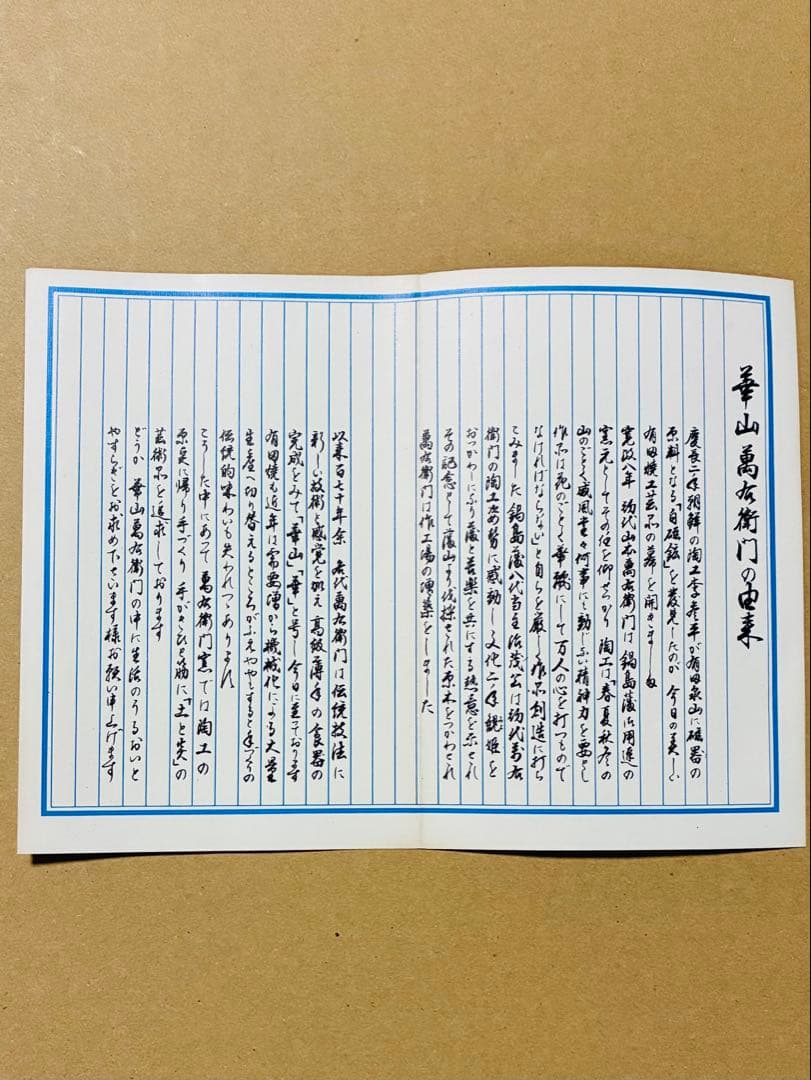 華山 萬右衛門の由来
慶長二年朝鮮の陶工李参平が有田泉山に磁器の
原料となる「白磁鉱」を発見したのが 今日の美しい
有田焼工芸品の幕を開きました
寛政八年 初代山本萬右衛門は鍋島藩御用達の
窯元としてその任を仰せつかり 陶工は「春夏秋冬の
山のごとく威風堂々何事にも動じない精神力を要とし
作品は花のごとく華麗にして万人の心を打つもので
なければならない」と自らを厳しく作品創造に打ち
こみました 鍋島藩八代当主治茂公は初代萬右
衛門の陶工姿勢に感動し 文化二年 親姫を
おつかわしになり藩と苦楽を共にする熱意を示され
その記念として藩山より伐採された原木をつかわされ
萬右衛門は作工場の増築をしました
以来百七十年余 各代萬右衛門は伝統技法に
新しい技術と感覚を加え 高級薄手の食器の
完成をみて「華山」「華」と号し今日に至っております
有田焼も近年は需要増から機械化による大量
生産へ切り替えるところがふえややもすると手づくりの
伝統的味わいも失われつつあります
こうした中にあって 萬右衛門窯では陶工の
原点に帰り手づくり 手がきひと筋に「土と炎」の
芸術品を追求しております
どうか 華山萬右衛門の中に生活のうるおいと
やすらぎをお求め下さいます様お願い申し上げます